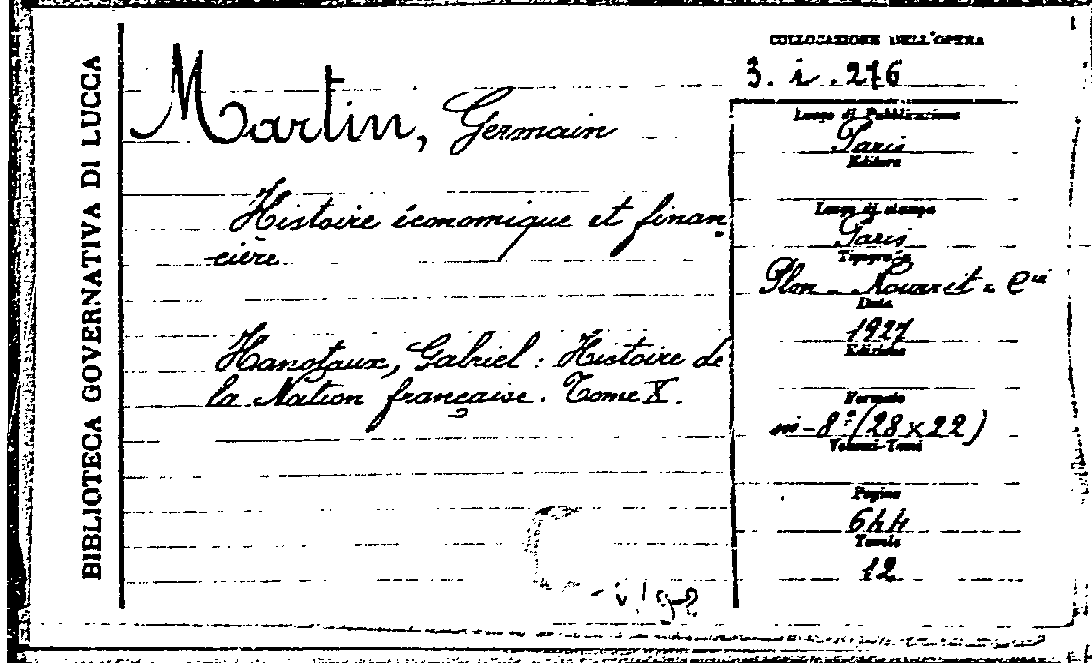 BIBLIOTECA GOVERNATIVA DI LUCCA
COLLOCAZIONE DELL'OPERA
3. i. 276
Martin, Germain
Histoire économique et finan-
cière
Hanotaux, Gabriel : Histoire de
la Nation française. Tome X.
Luogo di Pubblicazione
Paris
Editore
Luogo di stampa
Paris
Tipografia
Plon - Nourrit - C
Data
1927
Edizione
Formato
in-8° (28x22)
Volumi-Tomi
Pagine
644
Tavole
12